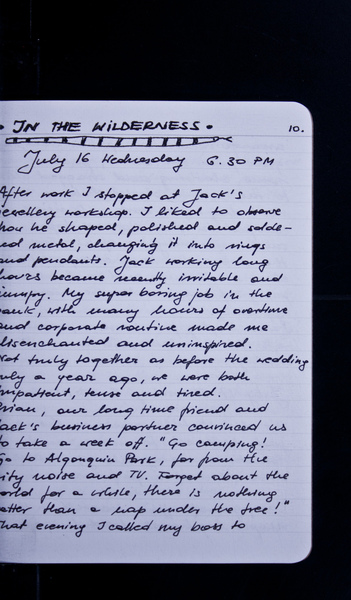 • IN THE WILDERNESS •
10.
July 16 Wednesday 6.30 PM
After work I stopped at Jack's
jewellery workshop. I liked to observe
how he shaped, polished and solde-
red metal, changing it into rings
and pendants. Jack working long
hours became recently irritable and
jumpy. My super boring job in the
bank, with many hours of overtime
and corporate routine made me
disenchanted and uninspired.
Not truly together as before the wedding
only a year ago, we were both
impatient, tense and tired.
Brian, our long time friend and
Jack's business partner convinced us
to take a week off. "Go camping!
Go to Algonquin Park, far from the
city noise and TV. Forget about the
world for a while, there is nothing
better than a nap under the tree!"
That evening I called my boss to